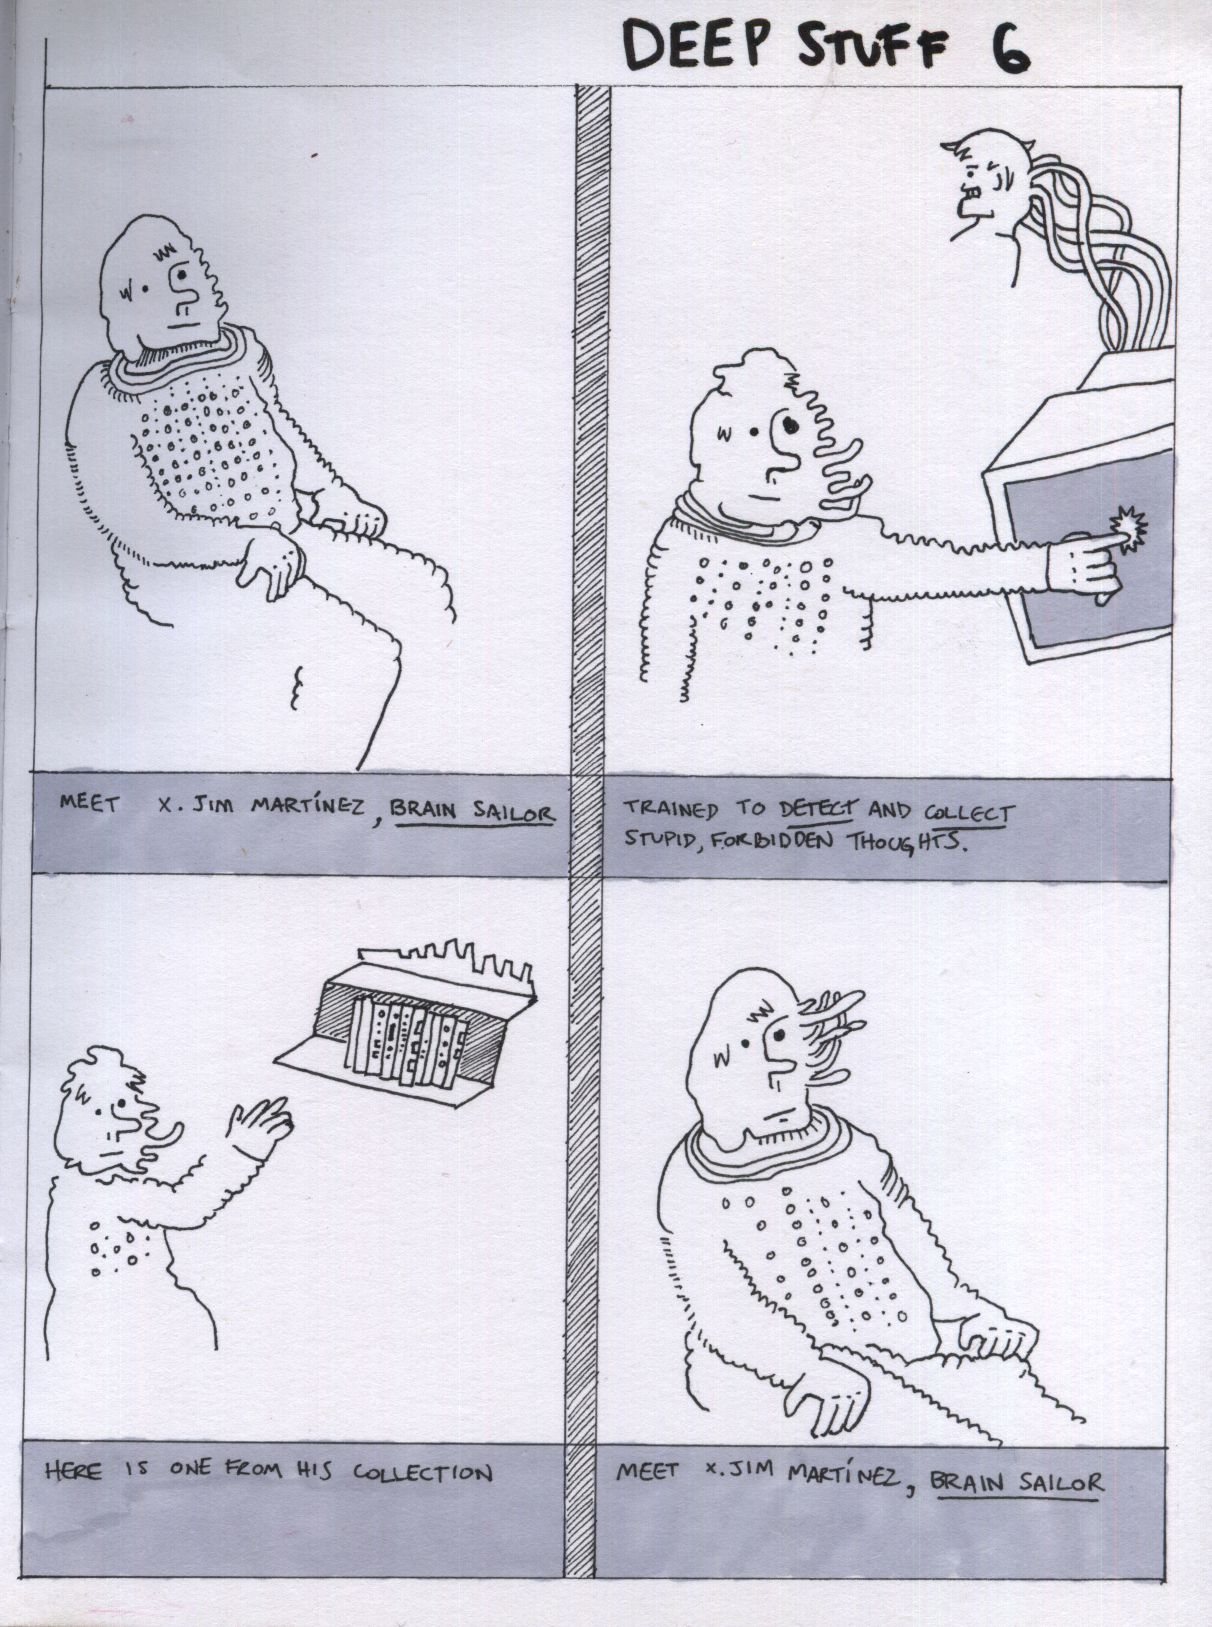 DEEP STUFF 6
MEET X. JIM MARTÍNEZ, BRAIN SAILOR
TRAINED TO DETECT AND COLLECT
STUPID, FORBIDDEN THOUGHTS.
HERE IS ONE FROM HIS COLLECTION
MEET X. JIM MARTÍNEZ, BRAIN SAILOR